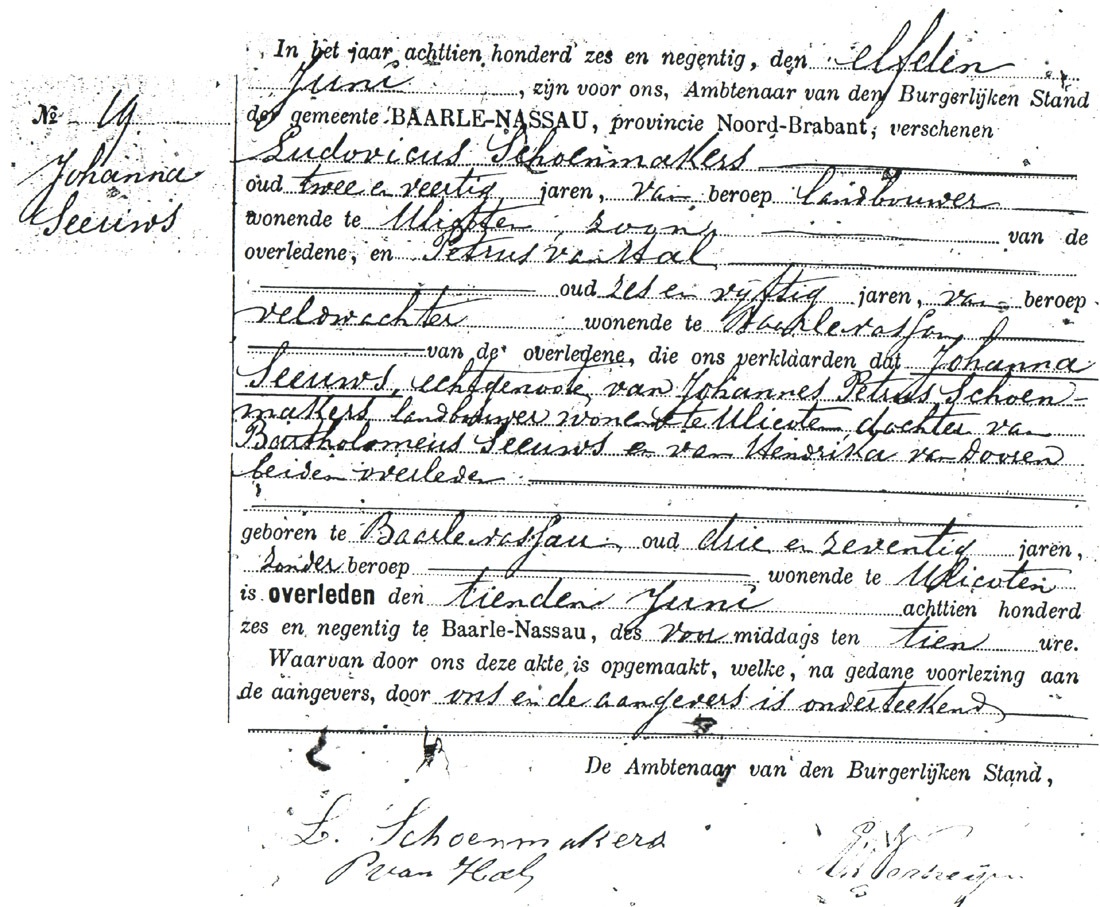 In het jaar achttien honderd zes en negentig, den elfden
Juni, zijn voor ons, Ambtenaar van den Burgerlijken Stand
der gemeente BAARLE-NASSAU, provincie Noord-Brabant, verschenen
Nº 19
Johanna
Seeuws
Ludovicus Schoenmakers
oud twee en veertig jaren, van beroep landbouwer
wonende te Ulicoten, zoon van de
overledene, en Petrus van Hal
oud zes en vijftig jaren, van beroep
veldwachter wonende te Baarlenassau
van de overledene, die ons verklaarden dat Johanna
Seeuws, echtgenoote van Johannes Petrus Schoen-
makers landbouwer wonende te Ulicoten, dochter van
Bartholomeus Seeuws en van Hendrika van Dooren
beiden overleden
geboren te Baarlenassau, oud drie en zeventig jaren,
zonder beroep wonende te Ulicoten
is overleden den tienden Juni achttien honderd
zes en negentig te Baarle-Nassau, des voormiddags ten tien ure.
Waarvan door ons deze akte is opgemaakt, welke, na gedane voorlezing aan
de aangevers, door ons en de aangevers is onderteekend
De Ambtenaar van den Burgerlijken Stand,
L. Schoenmakers
P van Hal